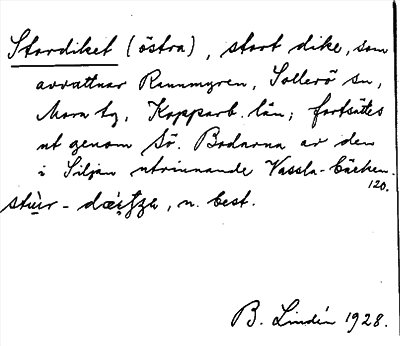 Stordiket (östra), stort dike, som
avvattnar Rennmyren, Sollerö sn,
Mora tg, Kopparb. län; fortsättes
ut genom Sö. Bodarna av den
i Siljan utrinnande Vassla-bäcken.
120.
n. best.
B. Lindén 1928.